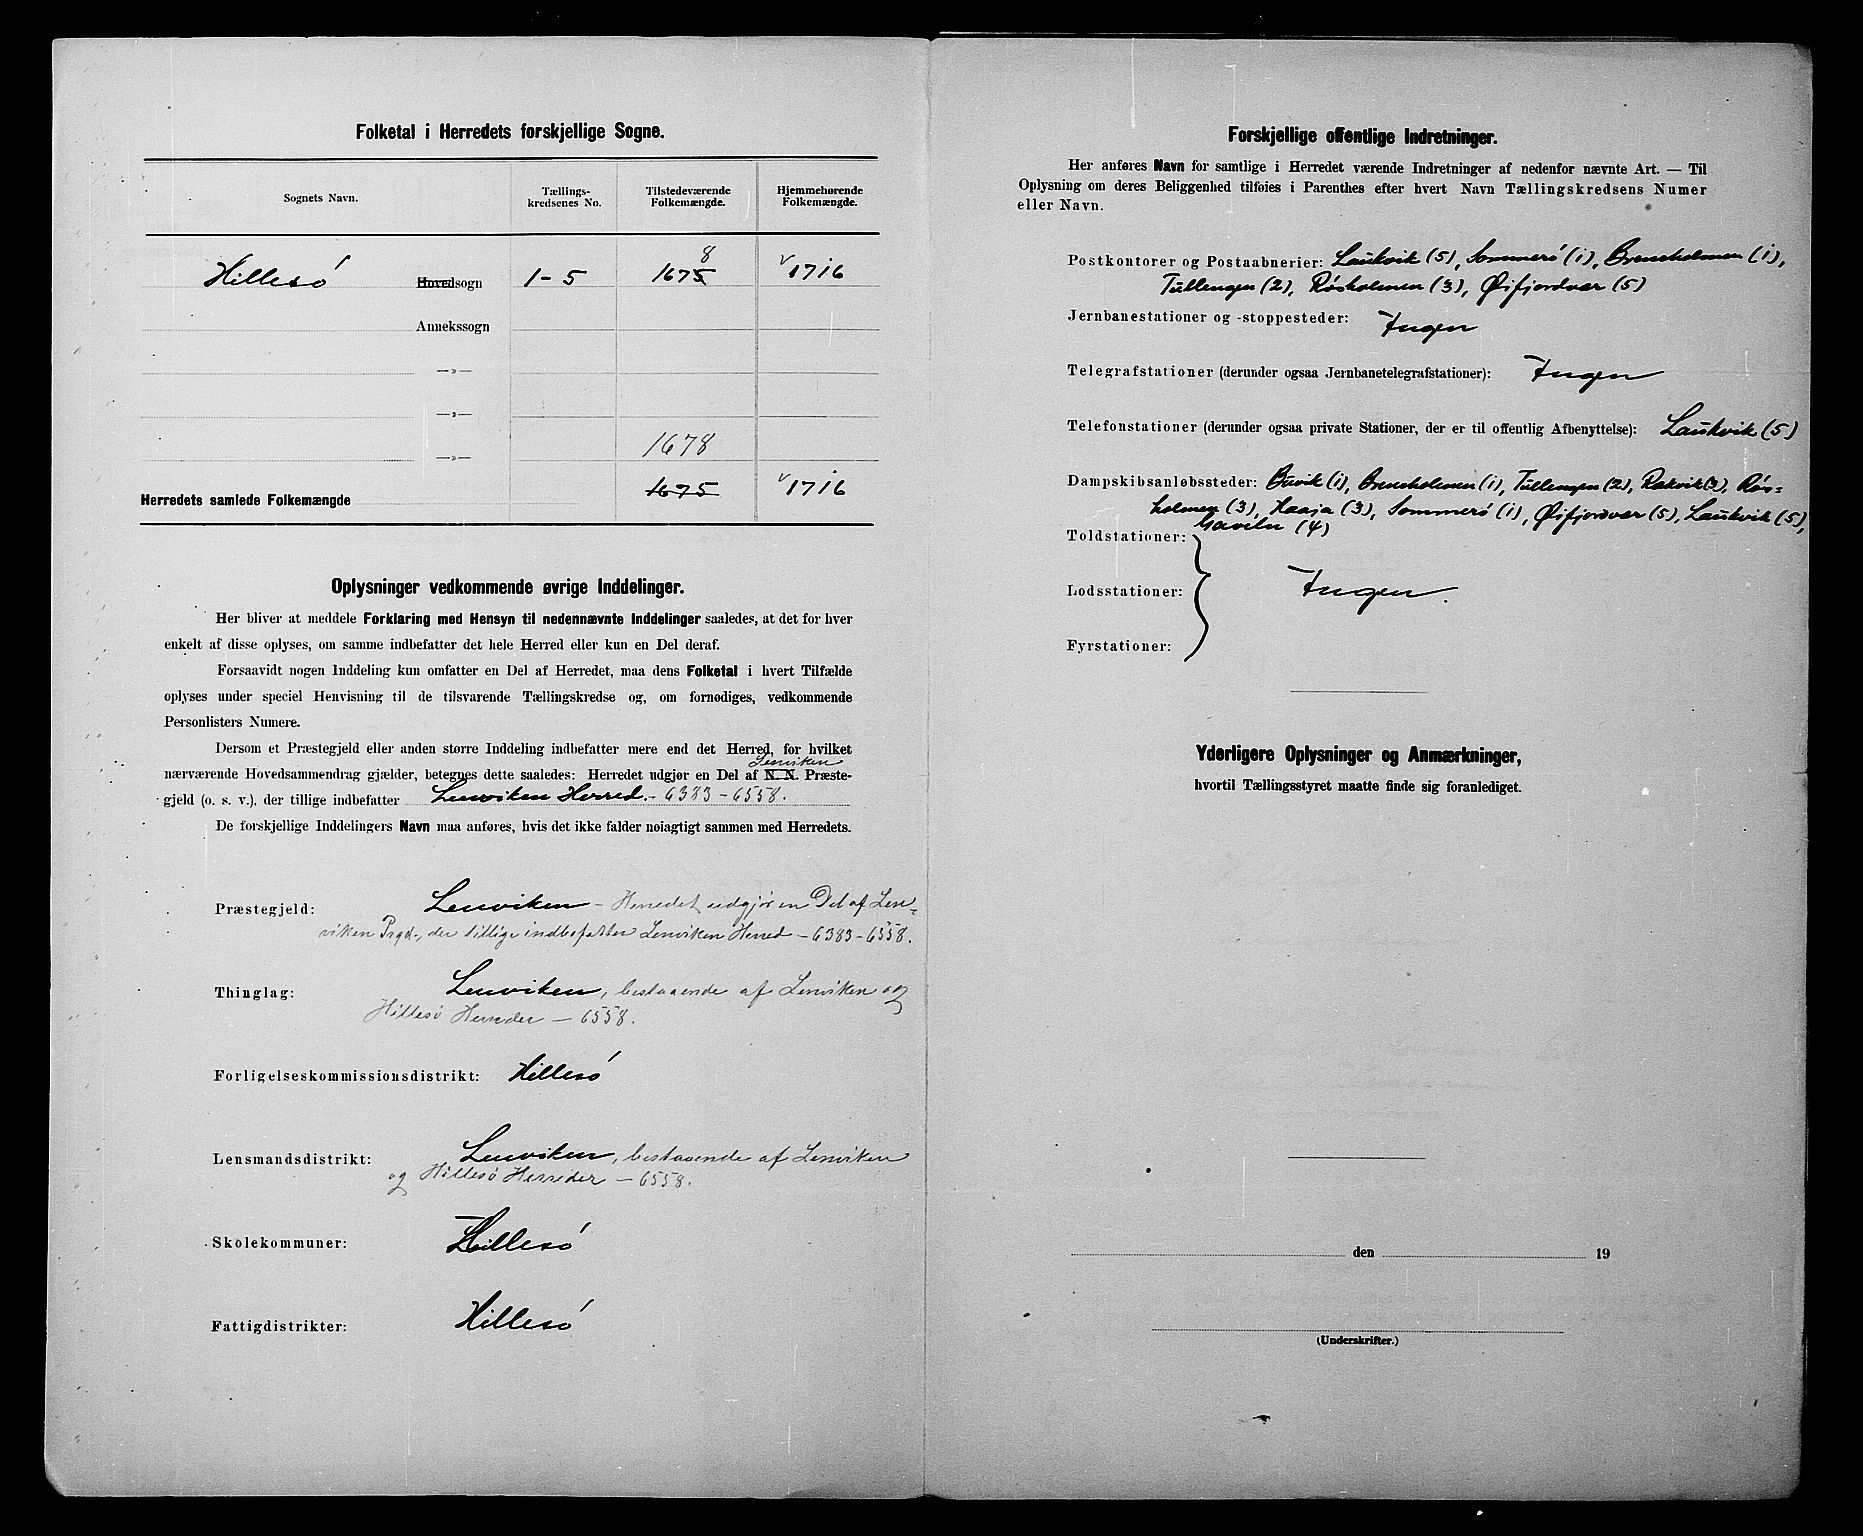 Folketal i Herredets forskjellige Sogne.
Sognets Navn. Tællings-kredsenes No. Tilstedeværende Folkemængde. Hjemmehørende Folkemængde.
8
Hillesö Hovedsogn 1-5 1675 v 1716
Annekssogn
—»—
—»—
1678
—»—
Herredets samlede Folkemængde 1675 v 1716
Oplysninger vedkommende øvrige Inddelinger.
Her bliver at meddele Forklaring med Hensyn til nedennævnte Inddelinger saaledes, at det for hver
enkelt af disse oplyses, om samme indbefatter det hele Herred eller kun en Del deraf.
Forsaavidt nogen Inddeling kun omfatter en Del af Herredet, maa dens Folketal i hvert Tilfælde
oplyses under speciel Henvisning til de tilsvarende Tællingskredse og, om fornødiges, vedkommende
Personlisters Numere.
Dersom et Præstegjeld eller anden større Inddeling indbefatter mere end det Herred, for hvilket
Lenviken
nærværende Hovedsammendrag gjælder, betegnes dette saaledes: Herredet udgjør en Del af N. N. Præste-
gjeld (o. s. v.), der tillige indbefatter Lenviken Herred. - 6383 - 6558.
De forskjellige Inddelingers Navn maa anføres, hvis det ikke falder nøiagtigt sammen med Herredets.
Præstegjeld: Lenviken - Herredet udgjör en Del af Len-
viken Prgd., der tillige indbefatter Lenviken Herred - 6383 - 6558.
Thinglag: Lenviken, bestaaende af Lenviken og
Hillesö Herreder - 6558.
Forligelseskommissionsdistrikt: Hillesö
Lensmandsdistrikt: Lenviken, bestaaende af Lenviken
og Hillesö Herreder - 6558.
Skolekommuner: Hillesö
Fattigdistrikter: Hillesö
Forskjellige offentlige Indretninger.
Her anføres Navn for samtlige i Herredet værende Indretninger af nedenfor nævnte Art. — Til
Oplysning om deres Beliggenhed tilføies i Parenthes efter hvert Navn Tællingskredsens Numer
eller Navn.
Postkontorer og Postaabnerier: Laukvik (5), Sommerö (1), Brensholmen (1),
Tullengen (2), Røsholmen (3), Øifjordvær (5)
Jernbanestationer og -stoppesteder: Ingen
Telegrafstationer (derunder ogsaa Jernbanetelegrafstationer): Ingen
Telefonstationer (derunder ogsaa private Stationer, der er til offentlig Afbenyttelse): Laukvik (5)
Dampskibsanløbssteder: Buvik (1), Brensholmen (1), Tullengen (2), Rekvik (3), Røs-
holmen (3), Haaja (3), Sommerö (1), Øifjordvær (5), Laukvik (5),
(4)
Toldstationer:
Lodsstationer: Ingen.
Fyrstationer:
Yderligere Oplysninger og Anmærkninger,
hvortil Tællingsstyret maatte finde sig foranlediget.
den 19
(Underskrifter.)